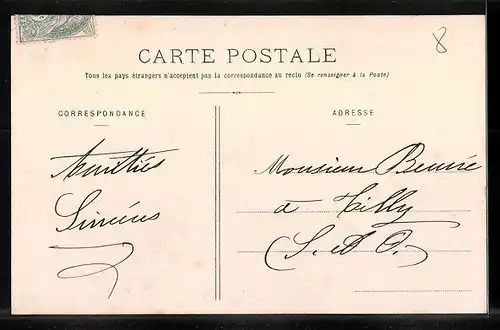 CARTE POSTALE
Tous les pays étrangers n'acceptent pas la correspondance au recto (Se renseigner à la Poste)
CORRESPONDANCE
ADRESSE
8
Amitiés
Sincères
Monsieur
à Tilly
(S. et O.)